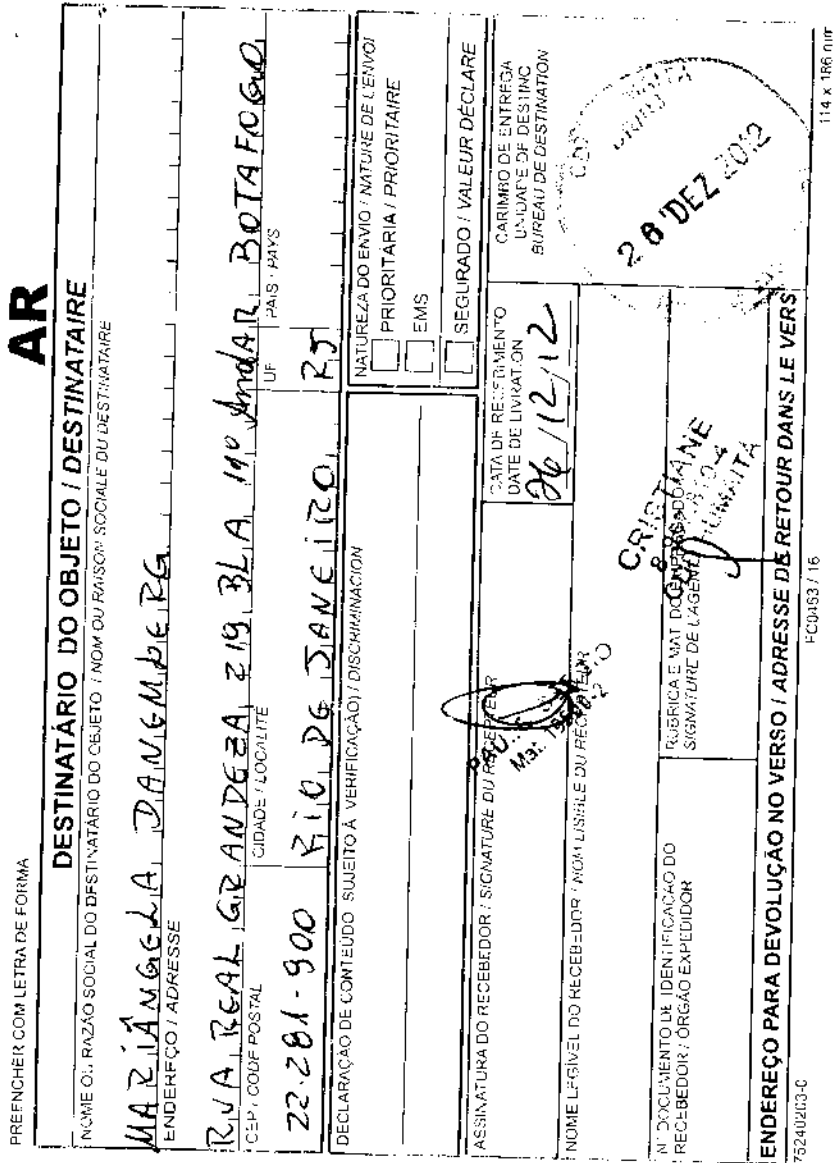 PREENCHER COM LETRA DE FORMA
AR
DESTINATÁRIO DO OBJETO / DESTINATAIRE
NOME OU RAZÃO SOCIAL DO DESTINATÁRIO DO OBJETO / NOM OU RAISON SOCIALE DU DESTINATAIRE
MARIÂNGELA DANEMBERG
ENDEREÇO / ADRESSE
RUA REAL GRANDEZA 219 BLA 14º AndAR BOTAFOGO
CEP / CODE POSTAL
CIDADE / LOCALITÉ
UF
PAÍS / PAYS
22.281-900
RiO DE JANEiRO
RJ
DECLARAÇÃO DE CONTEÚDO SUJEITO À VERIFICAÇÃO) / DISCRIMINACION
NATUREZA DO ENVIO / NATURE DE L'ENVOI
PRIORITÁRIA / PRIORITAIRE
EMS
SEGURADO / VALEUR DÉCLARÉ
ASSINATURA DO RECEBEDOR / SIGNATURE DU RÉCEPTEUR
DATA DE RECEBIMENTO
DATE DE LIVRATION
26/12/12
CARIMBO DE ENTREGA
UNIDADE DE DESTINO
BUREAU DE DESTINATION
28 DEZ 2012
NOME LEGÍVEL DO RECEBEDOR / NOM LISIBLE DU RÉCEPTEUR
Mat.
Nº DOCUMENTO DE IDENTIFICAÇÃO DO
RECEBEDOR / ÓRGÃO EXPEDIDOR
RUBRICA E MAT. DO EMPREGADO
SIGNATURE DE L'AGENT
CRISTIANE
HUMAITÁ
ENDEREÇO PARA DEVOLUÇÃO NO VERSO / ADRESSE DE RETOUR DANS LE VERS
75240203-0
FC0463 / 16
114 x 186 mm